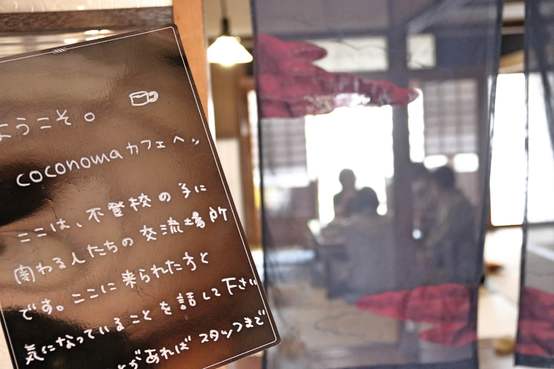 ようこそ。
coconomaカフェへ
ここは、不登校の子に
関わる人たちの交流場所
です。ここに来られた方と
気になっていることを話して下さい
あれば スタッフまで